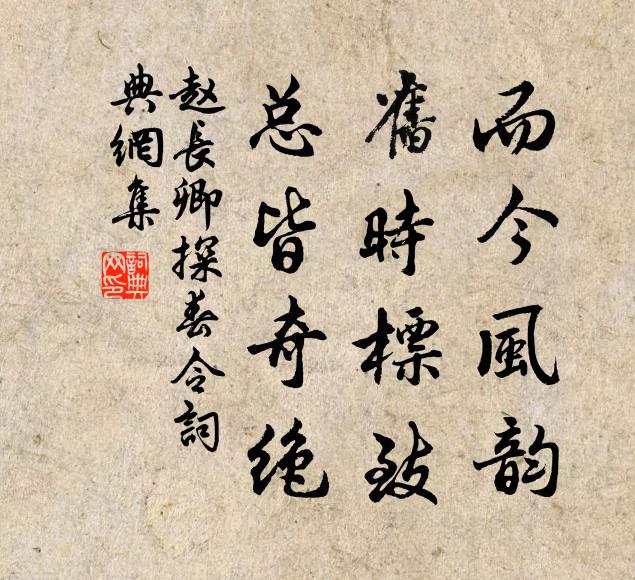 而今風韵
舊時標致
总皆奇绝
赵長卿探春令詞
典網集
詞典网印